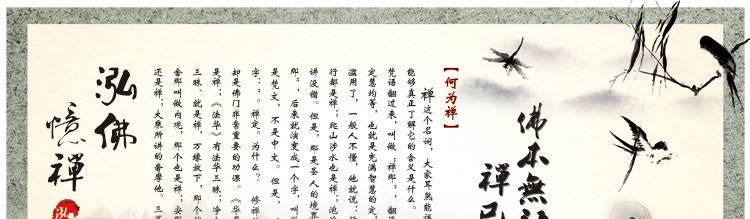 佛本無
禪
【何为禅】
禅这个名词，大家耳熟能详
能够真正了解它的含义是什么。
梵语翻过来，叫做“禅那”，翻
定慧均等，也就是充满智慧的定，
滥用了，一般人不懂，他就说：
行都是禅；爬山涉水也是禅；
讲没错。但是，那是圣人的境界
那”，后来就演变成一个字，叫
是梵文，不是中文。但是，
字：“。禅定。为什么？修禅
却是佛门非常重要的功课。《华
是禅；《法华》有法华三昧；净
三昧，就是禅，万缘放下，那个
舍那叫做内观，那个也是禅；安
还是禅；大乘所讲的奢摩他、三
泓佛
憶禪
泓